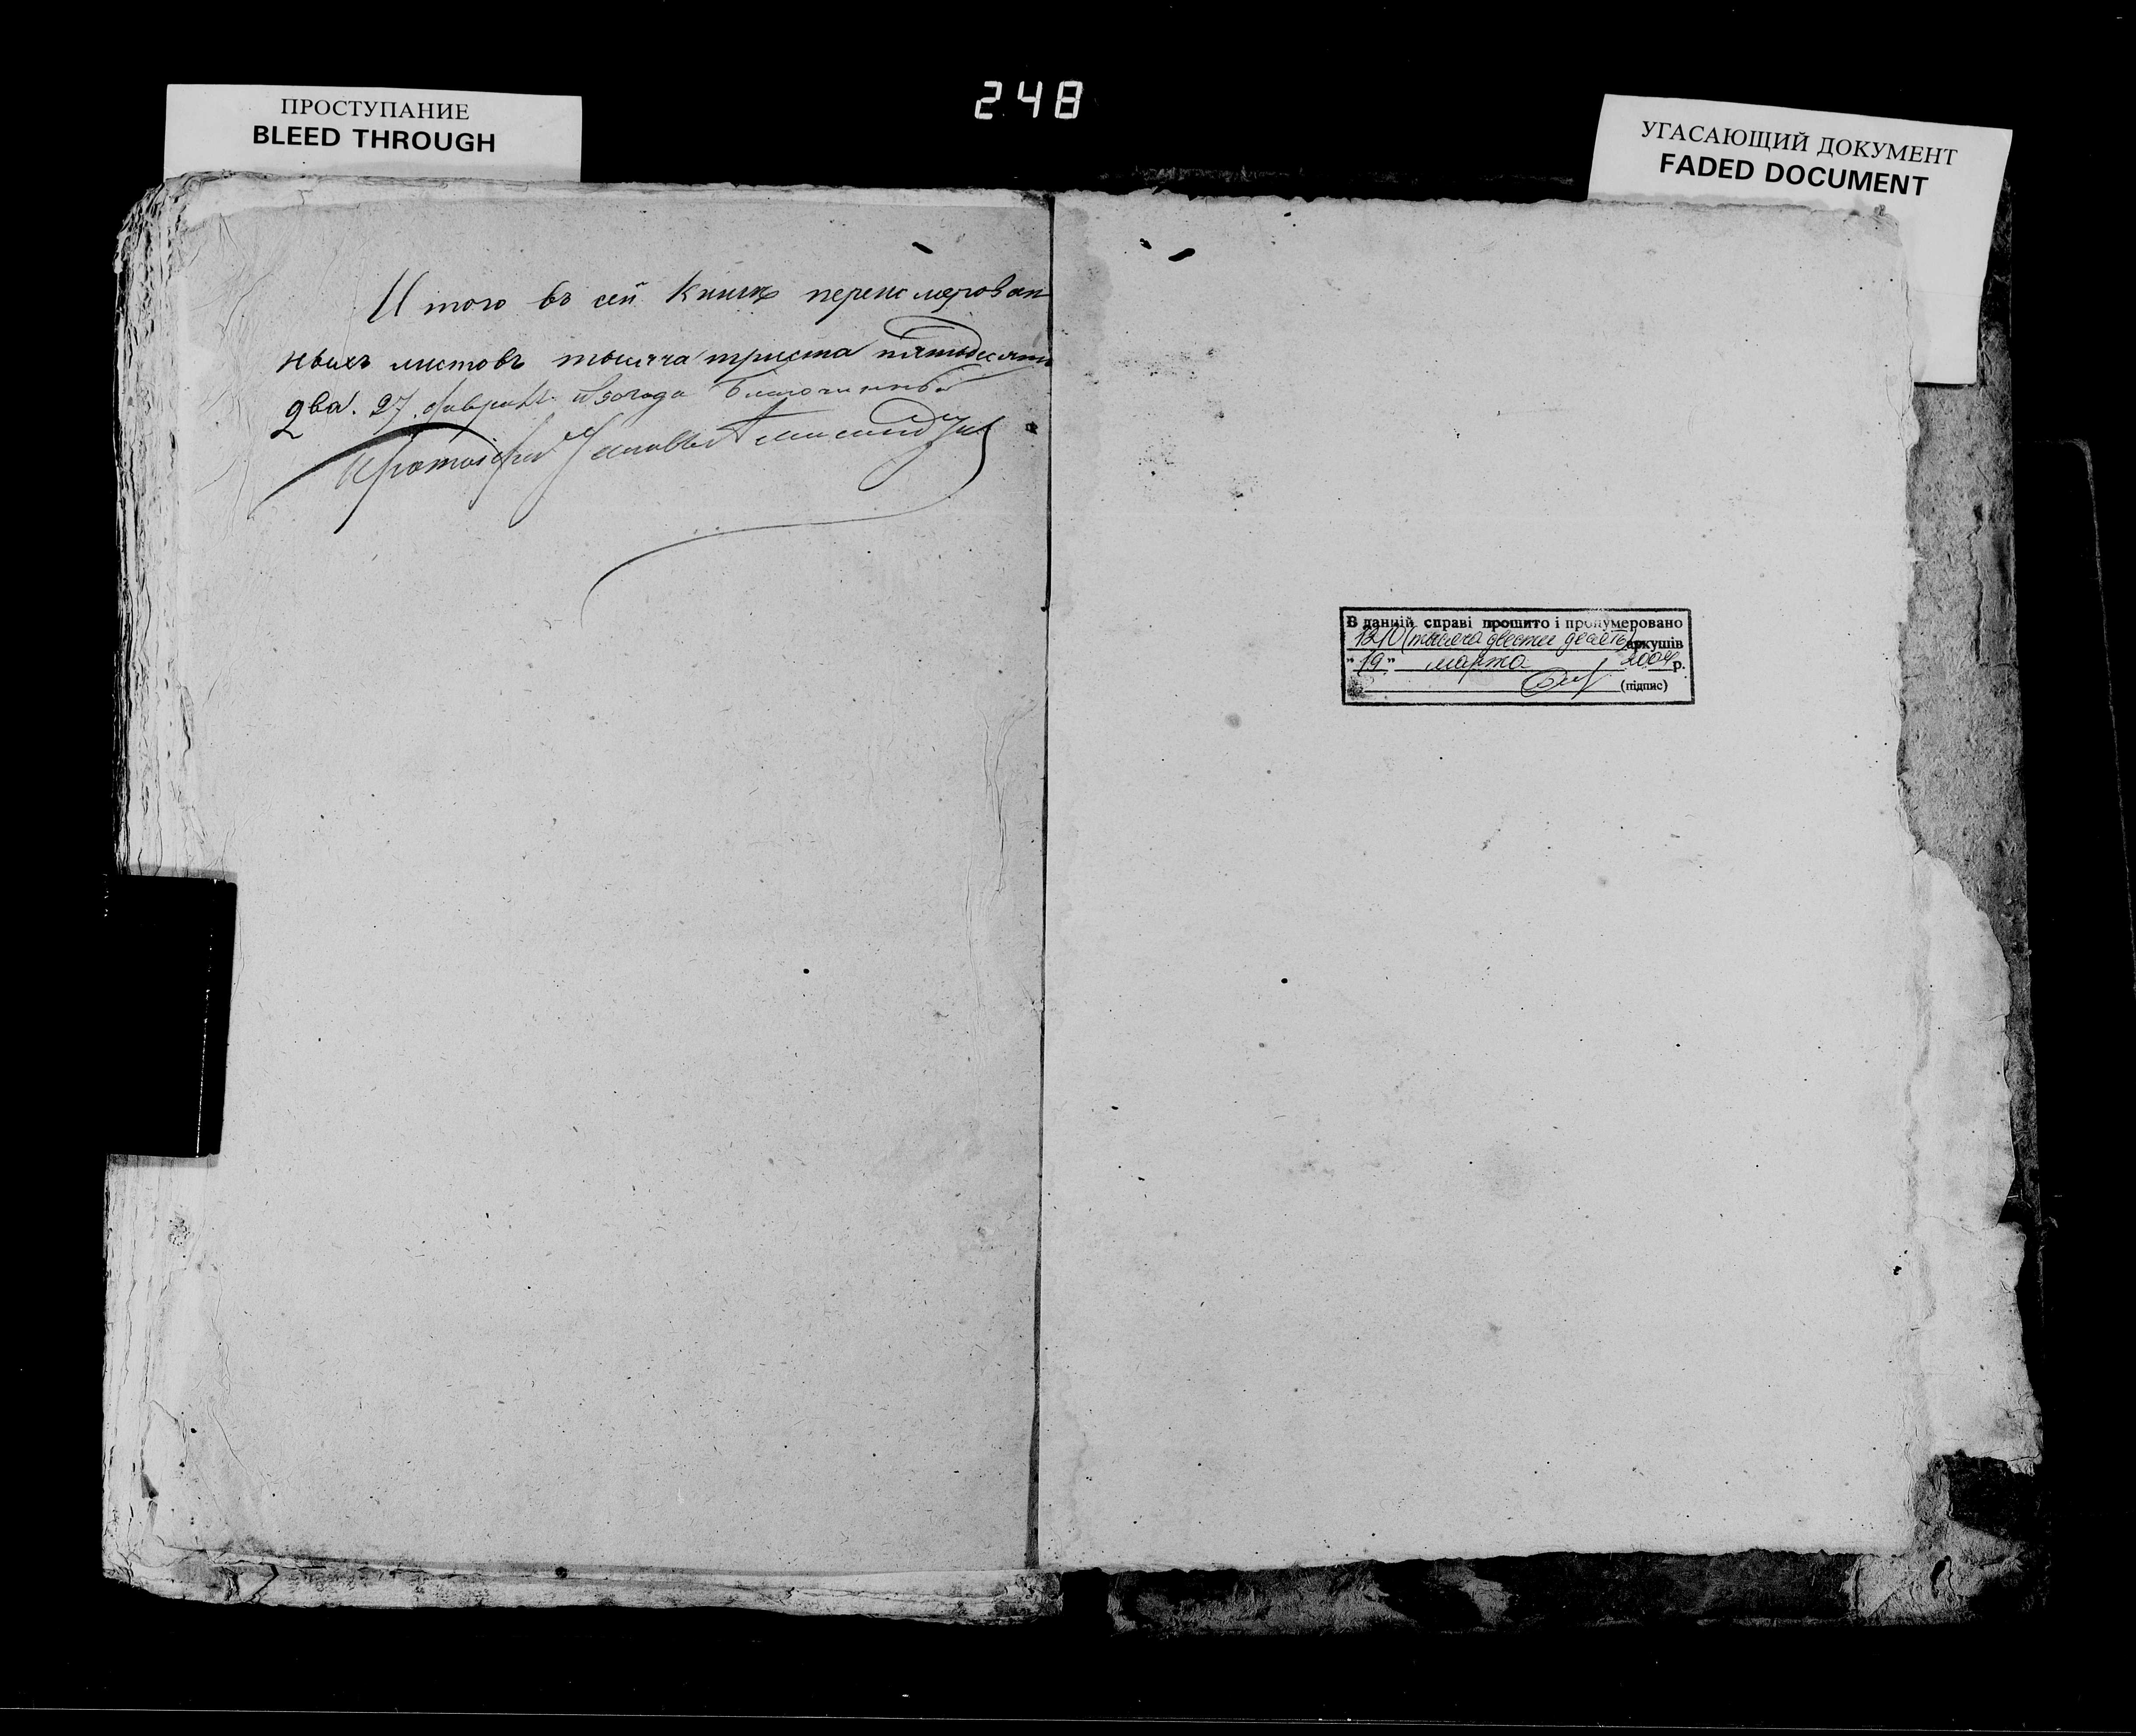 248
ПРОСТУПАНИЕ
BLEED THROUGH
УГАСАЮЩИЙ ДОКУМЕНТ
FADED DOCUMENT
Итого въ сей книгѣ перенумерован
ныхъ листовъ тысяча триста пятьдесятъ
два. 27. года Благочинный
Протоіерей
В данній справі прошито і пронумеровано
1210 (тысяча двести десять) аркушів
"19" марта 2004 р.
(підпис)